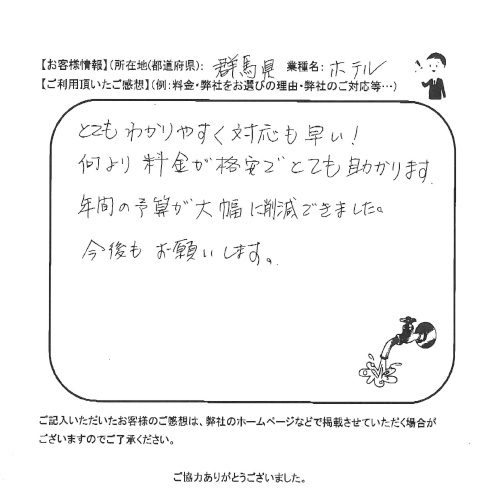 【お客様情報】（所在地（都道府県）： 群馬県 業種名： ホテル
【ご利用頂いたご感想】（例：料金・弊社をお選びの理由・弊社のご対応等…）
とてもわかりやすく対応も早い！
何より料金が格安でとても助かります
年間の予算が大幅に削減できました。
今後もお願いします。
ご記入いただいたお客様のご感想は、弊社のホームページなどで掲載させていただく場合が
ございますのでご了承ください。
ご協力ありがとうございました。